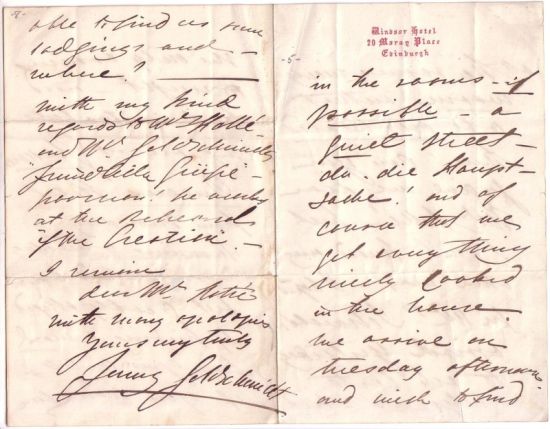 -8-
able to find us some
lodgings and -
where?
with my kind
regards to Mr Hallé
and Mr Goldschmidt's
at the Rehearsals
of the Creation. -
I remain
dear Mr
with many apologies
Yours very truly
Jenny Goldschmidt
-5-
Windsor Hotel
20 Moray Place
Edinburgh
in the rooms - if
possible - a
quiet street -
da. die Haupt-
sache! and of
course that we
get everything
nicely cooked
in the house.
we arrive on
Tuesday afternoon
and wish to find